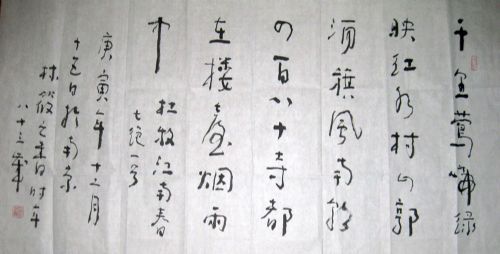 千里莺啼绿
映红水村山郭
酒旗風南朝
四百八十寺都
在楼臺烟雨
中
杜牧江南春
七绝一首
庚寅年十二月
十五日於南京
林筱之书时年
八十三岁